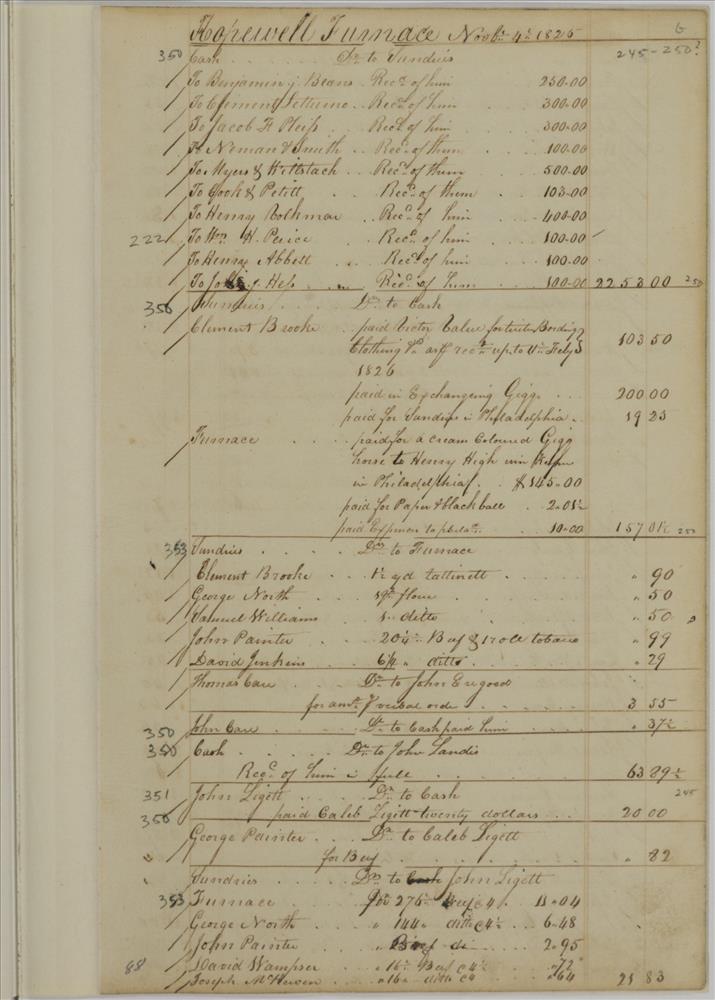 Hopewell Furnace Novbr 4th 1825 6
350 Cash Drs to Sundries 245-250?
To Benjamin J. Beans Recd of him 250.00
To Clement Recd of him 300.00
To Jacob H Pleiss Recd of him 300.00
To Neman & Smith Recd of them 100.00
To Myers & Recd of them 500.00
To Cook & Petitt Recd of them 103.00
To Henry Recd of him 400.00
222 To Wm H. Recd of him 100.00
To Henry Abbett Recd of him 100.00
To J. Hess Recd of him 100.00 2253 00 250
350 Sundries Drs to Cash
Clement Brooke paid Victor Bording
Clothing &c up to 11th Feby 103 50
1826
paid in Exchangeing Giggs 200 00
paid for Sundries in Philadelphia 19 23
Furnace paid for a cream Coloured Gigg
horse to Henry High
in Philadelphia $145.00
paid for Paper & black ball 2.01½
paid Expences 10.00 157 01½ 250
353 Sundries Drs to Furnace
Clement Brooke 1½ yd " 90
George North flour " 50
Samuel Williams 1 " ditto " 50
John Painter 20¼ " Beef & 1 role tobacco " 99
David Jenkins 6½ " ditto " 29
Thomas Care Dr to John
for amt of verbal order 3 55
350 John Care Dr to Cash paid him " 37½
350 Cash Dr to John Landis
Recd of him in full 63 89½
351 John Ligett Dr to Cash 245
350 paid Caleb Ligett twenty dollars 20 00
George Painter Dr to Caleb Ligett
" for Beef " 82
Sundries Drs to Cash John Ligett
353 Furnace for 276 " Beef @ 4 11.04
George North " 144 " ditto @ 4½ 6.48
John Painter " Beef do 2.95
88 David Wampser " 16 " Beef @ 4½ " 72
Joseph McKewen " 16 " ditto @ 4 " 64 21 83